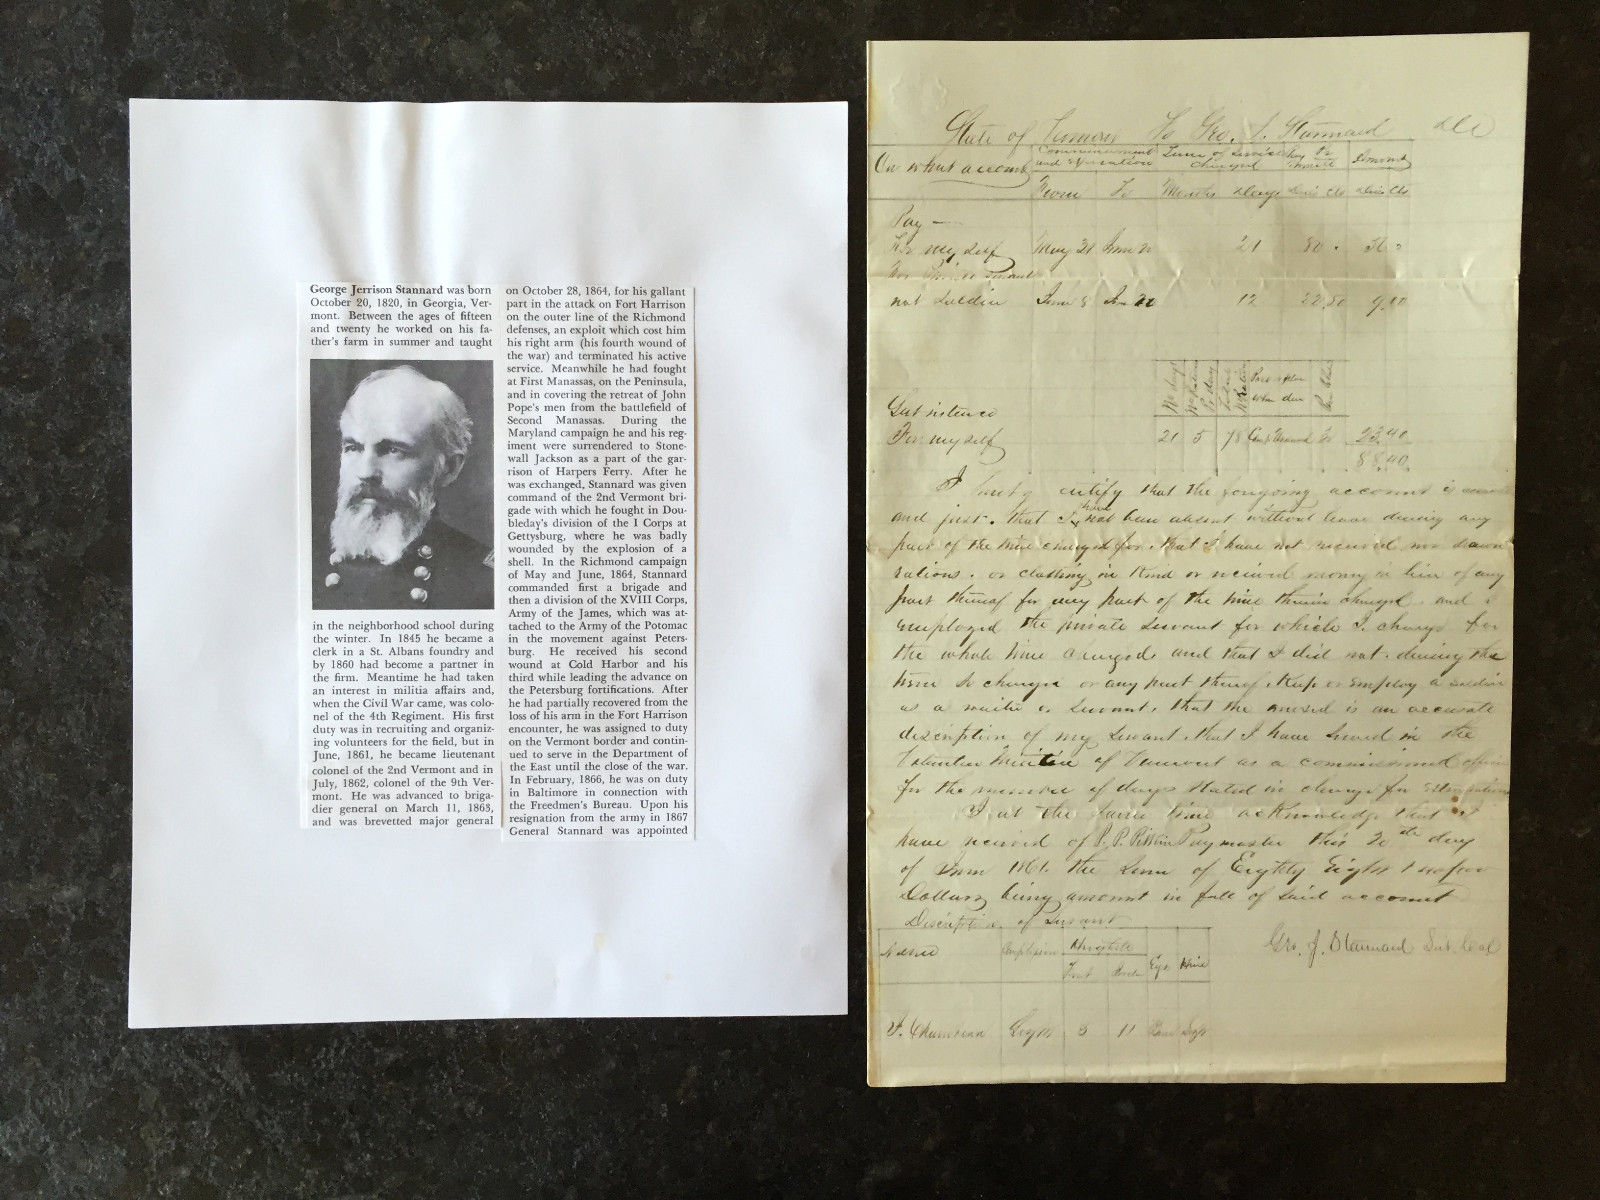 George Jerrison Stannard was born
October 20, 1820, in Georgia, Ver-
mont. Between the ages of fifteen
and twenty he worked on his fa-
ther's farm in summer and taught
in the neighborhood school during
the winter. In 1845 he became a
clerk in a St. Albans foundry and
by 1860 had become a partner in
the firm. Meantime he had taken
an interest in militia affairs and,
when the Civil War came, was colo-
nel of the 4th Regiment. His first
duty was in recruiting and organiz-
ing volunteers for the field, but in
June, 1861, he became lieutenant
colonel of the 2nd Vermont and in
July, 1862, colonel of the 9th Ver-
mont. He was advanced to briga-
dier general on March 11, 1863,
and was brevetted major general
on October 28, 1864, for his gallant
part in the attack on Fort Harrison
on the outer line of the Richmond
defenses, an exploit which cost him
his right arm (his fourth wound of
the war) and terminated his active
service. Meanwhile he had fought
at First Manassas, on the Peninsula,
and in covering the retreat of John
Pope's men from the battlefield of
Second Manassas. During the
Maryland campaign he and his reg-
iment were surrendered to Stone-
wall Jackson as a part of the gar-
rison of Harpers Ferry. After he
was exchanged, Stannard was given
command of the 2nd Vermont bri-
gade with which he fought in Dou-
bleday's division of the I Corps at
Gettysburg, where he was badly
wounded by the explosion of a
shell. In the Richmond campaign
of May and June, 1864, Stannard
commanded first a brigade and
then a division of the XVIII Corps,
Army of the James, which was at-
tached to the Army of the Potomac
in the movement against Peters-
burg. He received his second
wound at Cold Harbor and his
third while leading the advance on
the Petersburg fortifications. After
he had partially recovered from the
loss of his arm in the Fort Harrison
encounter, he was assigned to duty
on the Vermont border and contin-
ued to serve in the Department of
the East until the close of the war.
In February, 1866, he was on duty
in Baltimore in connection with
the Freedmen's Bureau. Upon his
resignation from the army in 1867
General Stannard was appointed
State of Vermont To Geo. J. Stannard
On what account Commencement and expiration Term of Service charged Pay Amount
From To Months Days
Pay —
For my self May 31 June 20 21 80
not Soldier June 8 12 22.50 9.00
Subsistence
For my self 21 5 23.40
88.40
I certify that the foregoing account is accurate
and just. that I have not been absent without leave during any
part of the time charged for. that I have not received nor drawn
rations. or clothing in kind or received money in lieu of any
part thereof for any part of the time therein charged. and I
employed the private servant for which I charge for
the whole time charged. and that I did not. during the
term so charged or any part thereof. keep or employ a soldier
as a waiter or servant. that the annexed is an accurate
description of my servant. that I have served in the
Volunteer of Vermont as a commissioned officer
for the number of days stated in charge for
I at the same time acknowledge that I
have received of P. P. Paymaster this 20th day
of June 1861. the sum of Eighty Eight
Dollars being amount in full of said account
Description of Servant
Geo. J. Stannard Lieut. Col
Name Complexion Height Eyes Hair
Feet Inches
5 11